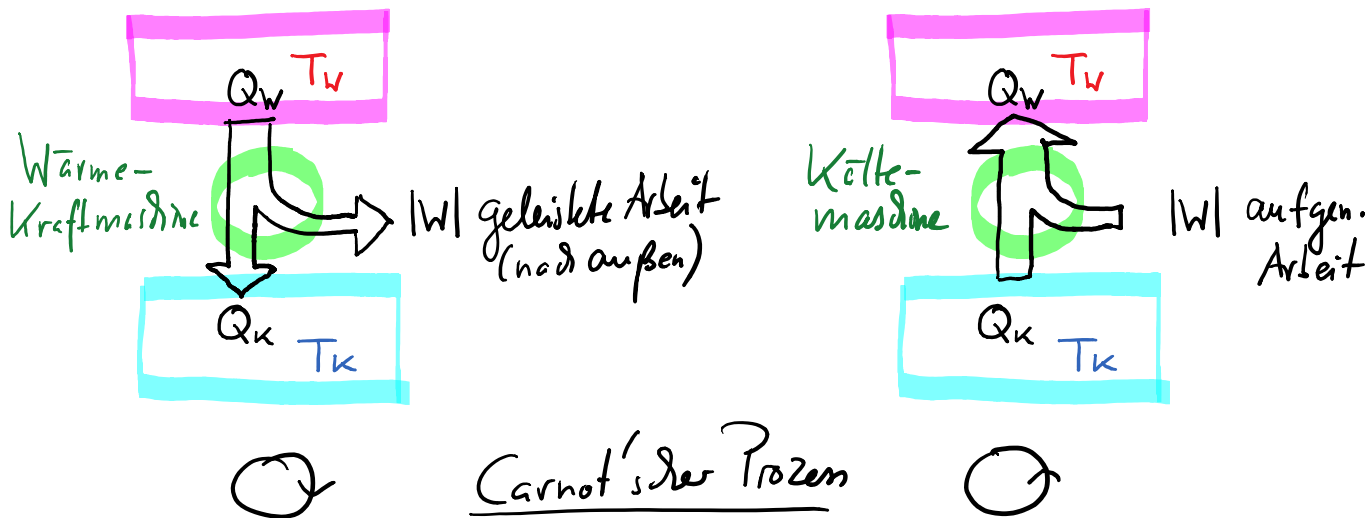 T_W
Q_W
Wärme-
Kraftmaschine
|W| geleistete Arbeit
(nach außen)
Q_K
T_K
T_W
Q_W
Kälte-
maschine
|W| aufgen.
Arbeit
Q_K
T_K
Carnot'scher Prozess